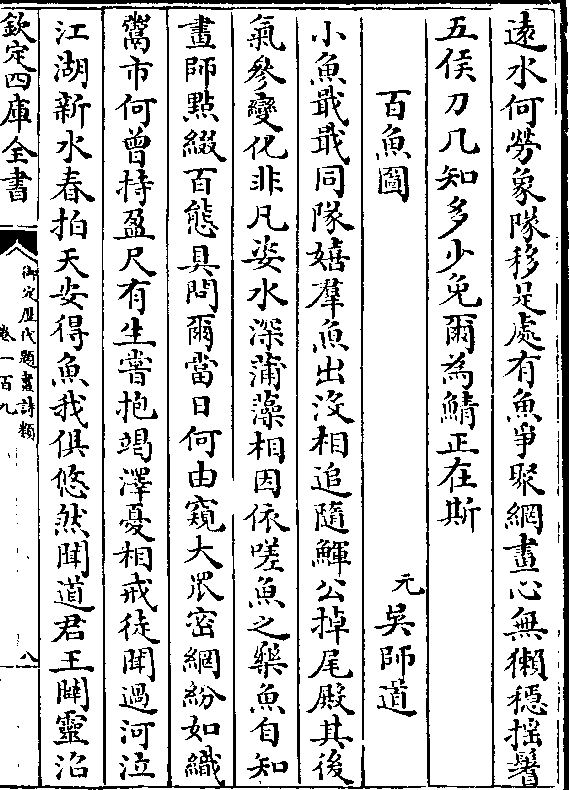 遠水何勞象隊移足處有魚爭聚網畫心無獺穩揺鬐
五侯刀几知多少免爾為鯖正在斯
百魚圖
元吳師道
小魚戢戢同隊嬉羣魚出没相追隨鯶公掉尾殿其後
氣參變化非凡姿水深蒲藻相因依嗟魚之樂魚自知
畫師點綴百態具問爾當日何由窺大罛密網紛如織
鬻市何曾持盈尺有生嘗抱竭澤憂相戒徒聞過河泣
江湖新水春拍天安得魚我俱悠然聞道君王闢靈沼
欽定四庫全書
御定歴代題畫詩類
卷一百九
八